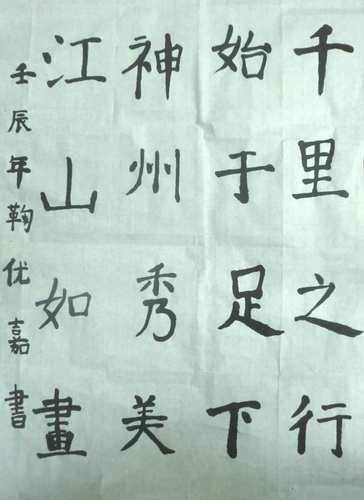 千里之行
始于足下
神州秀美
江山如畫
壬辰年鞠优嘉書